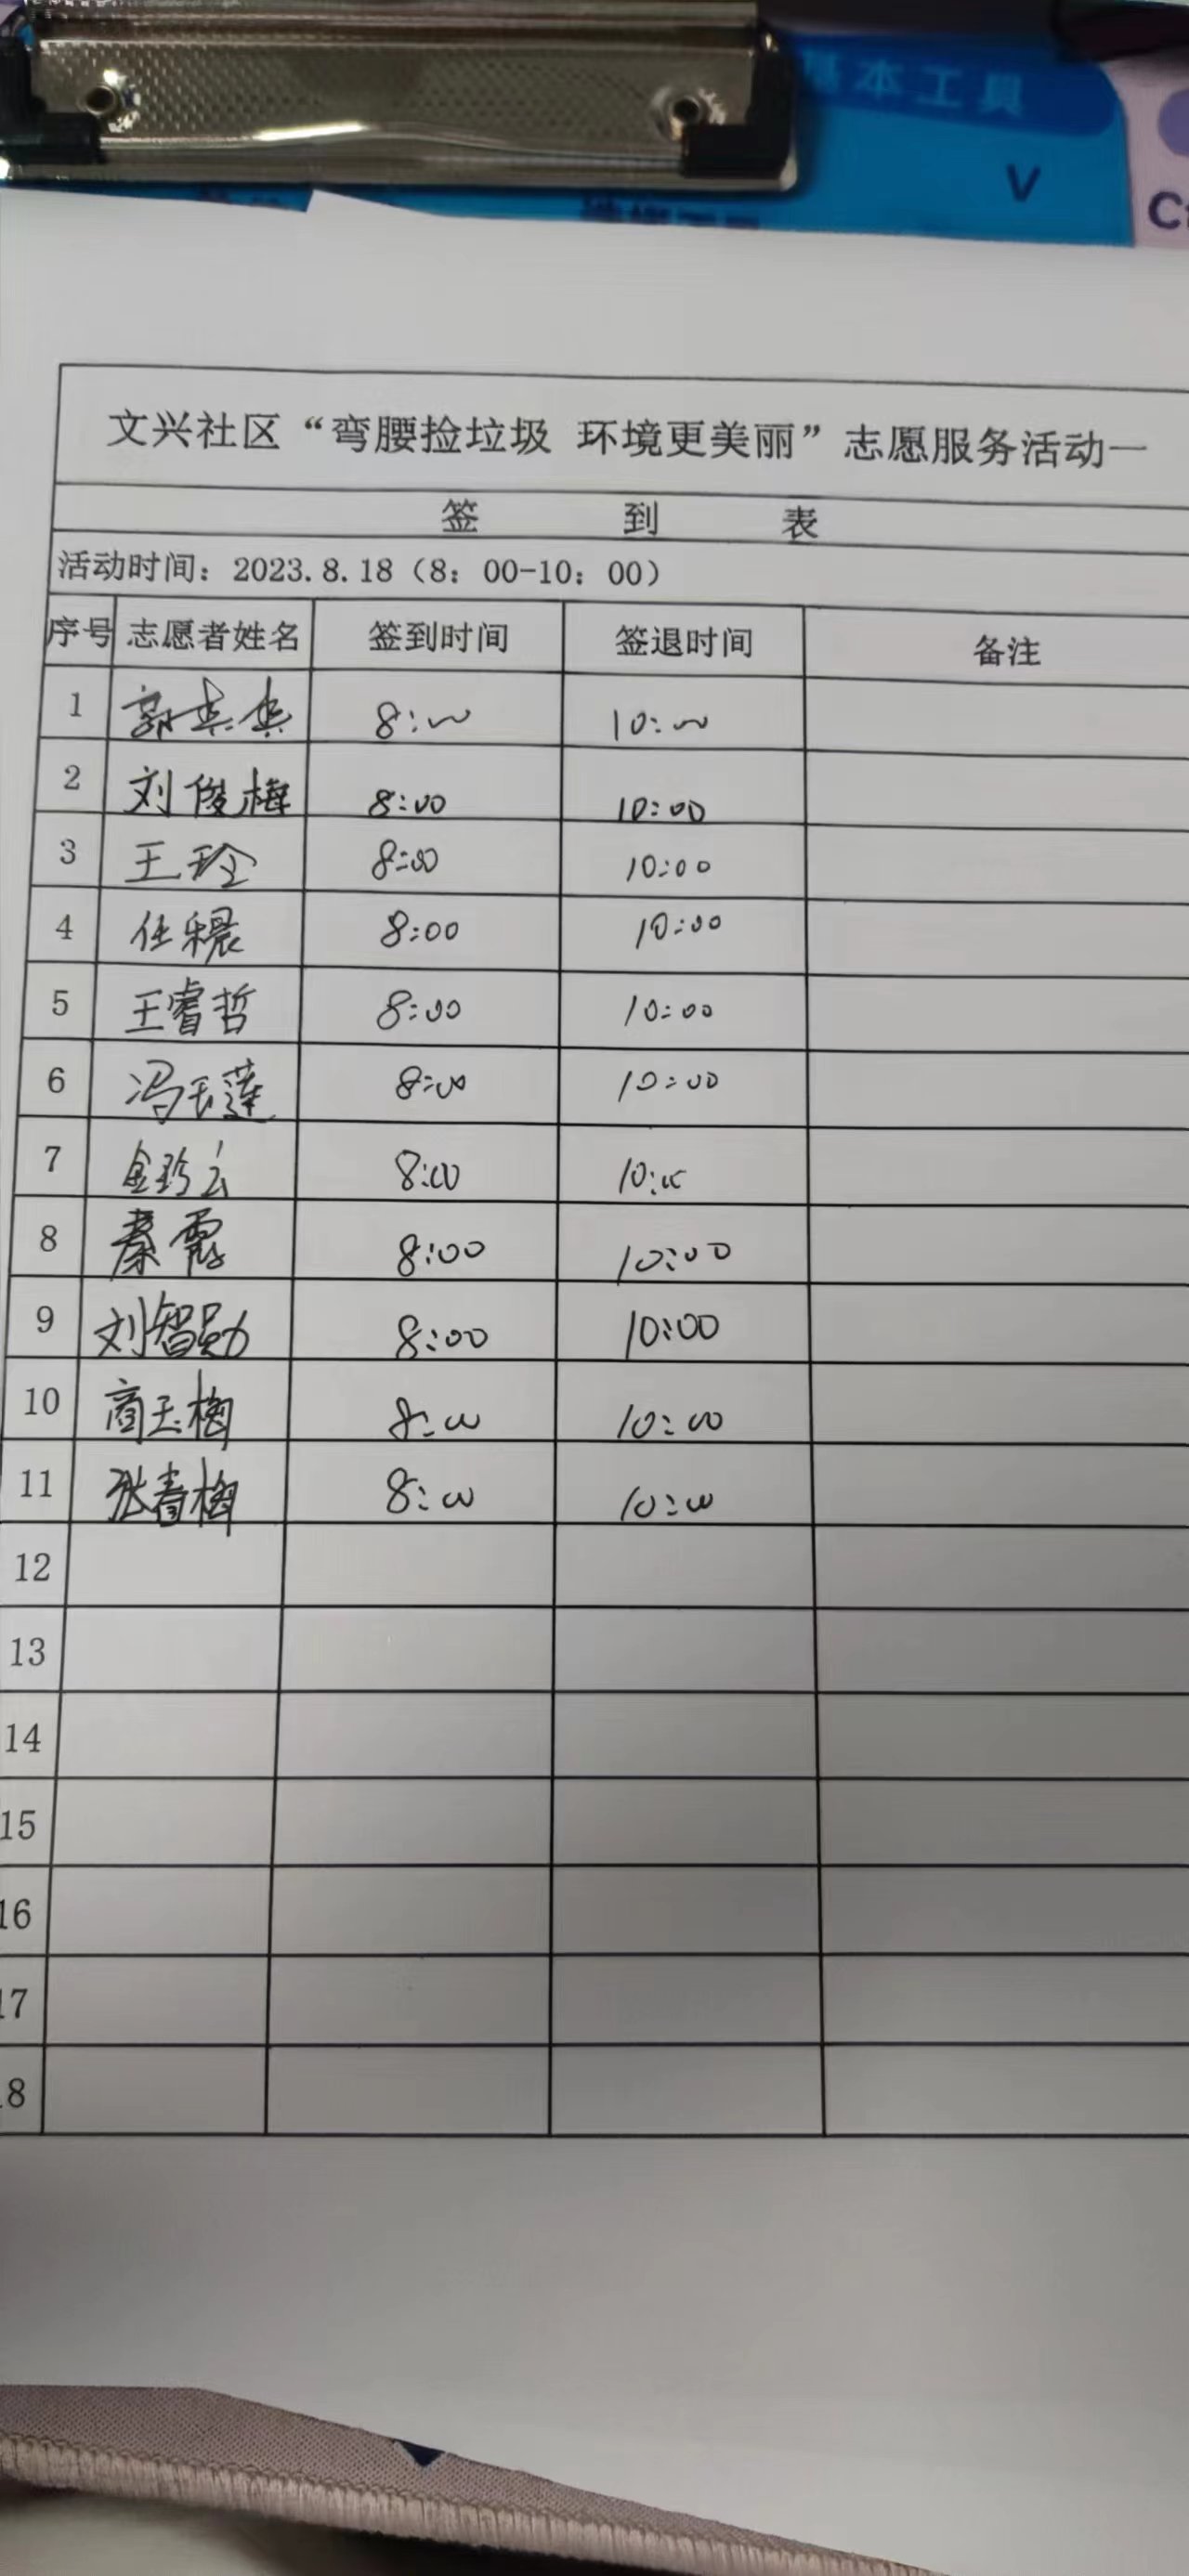 本工具
V
文兴社区“弯腰捡垃圾 环境更美丽”志愿服务活动一
签 到 表
活动时间：2023.8.18（8：00-10：00）
序号 志愿者姓名 签到时间 签退时间 备注
1 8:00 10:00
2 刘俊梅 8:00 10:00
3 王玲 8:00 10:00
4 任 8:00 10:00
5 王睿哲 8:00 10:00
6 冯玉莲 8:00 10:00
7 金玲云 8:00 10:00
8 秦霞 8:00 10:00
9 刘智勋 8:00 10:00
10 商玉梅 8:00 10:00
11 张春梅 8:00 10:00
12
13
14
15
16
17
18